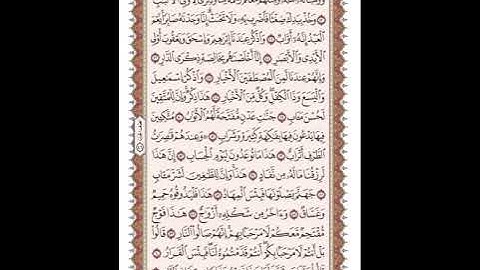 وَخُذْ بِيَدِكَ ضِغْثًا فَٱضْرِب بِّهِۦ وَلَا تَحْنَثْ إِنَّا وَجَدْنَٰهُ صَابِرًا نِّعْمَ
ٱلْعَبْدُ إِنَّهُۥٓ أَوَّابٌ وَٱذْكُرْ عِبَٰدَنَآ إِبْرَٰهِيمَ وَإِسْحَٰقَ وَيَعْقُوبَ أُو۟لِى
ٱلْأَيْدِى وَٱلْأَبْصَٰرِ إِنَّآ أَخْلَصْنَٰهُم بِخَالِصَةٍ ذِكْرَى ٱلدَّارِ
وَإِنَّهُمْ عِندَنَا لَمِنَ ٱلْمُصْطَفَيْنَ ٱلْأَخْيَارِ وَٱذْكُرْ إِسْمَٰعِيلَ
وَٱلْيَسَعَ وَذَا ٱلْكِفْلِ وَكُلٌّ مِّنَ ٱلْأَخْيَارِ هَٰذَا ذِكْرٌ وَإِنَّ لِلْمُتَّقِينَ
لَحُسْنَ مَـَٔابٍ جَنَّٰتِ عَدْنٍ مُّفَتَّحَةً لَّهُمُ ٱلْأَبْوَٰبُ مُتَّكِـِٔينَ
فِيهَا يَدْعُونَ فِيهَا بِفَٰكِهَةٍ كَثِيرَةٍ وَشَرَابٍ وَعِندَهُمْ قَٰصِرَٰتُ
ٱلطَّرْفِ أَتْرَابٌ هَٰذَا مَا تُوعَدُونَ لِيَوْمِ ٱلْحِسَابِ إِنَّ هَٰذَا
لَرِزْقُنَا مَا لَهُۥ مِن نَّفَادٍ هَٰذَا وَإِنَّ لِلطَّٰغِينَ لَشَرَّ مَـَٔابٍ
جَهَنَّمَ يَصْلَوْنَهَا فَبِئْسَ ٱلْمِهَادُ هَٰذَا فَلْيَذُوقُوهُ حَمِيمٌ
وَغَسَّاقٌ وَءَاخَرُ مِن شَكْلِهِۦٓ أَزْوَٰجٌ هَٰذَا فَوْجٌ
مُّقْتَحِمٌ مَّعَكُمْ لَا مَرْحَبًۢا بِهِمْ إِنَّهُمْ صَالُوا۟ ٱلنَّارِ قَالُوا۟
بَلْ أَنتُمْ لَا مَرْحَبًۢا بِكُمْ أَنتُمْ قَدَّمْتُمُوهُ لَنَا فَبِئْسَ ٱلْقَرَارُ